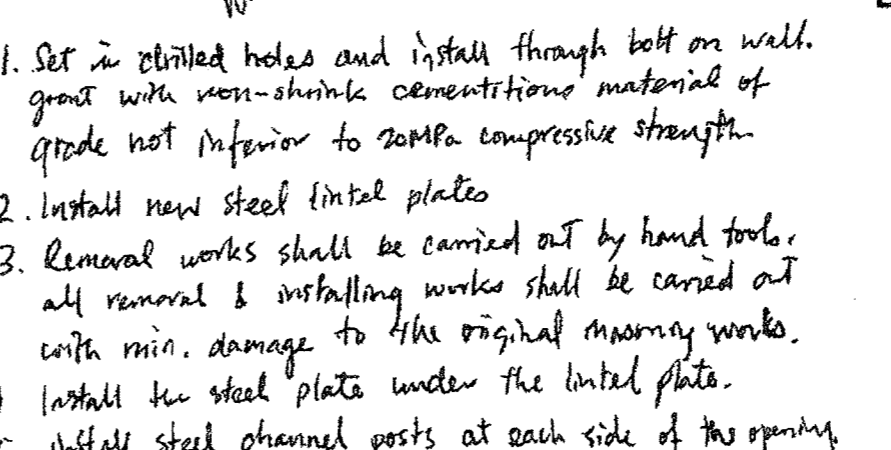 1. Set in drilled holes and install through bolt on wall.
grout with non-shrink cementitious material of
grade not inferior to 20MPa compressive strength
2. Install new steel lintel plates
3. Removal works shall be carried out by hand tools.
all removal & installing works shall be carried out
with min. damage to the original masonry works.
Install the steel plate under the lintel plate.
install steel channel posts at each side of the opening.